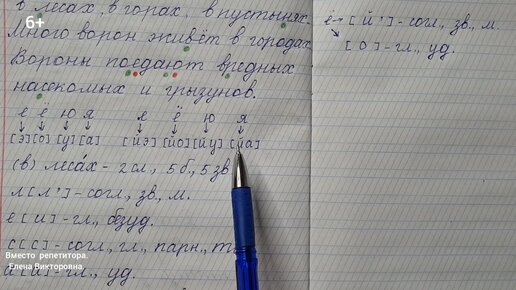 в лесах, в горах, в пустынях.
Много ворон живёт в городах.
Вороны поедают вредных
насекомых и грызунов.
е ё ю я е ё ю я
[э] [о] [у] [а] [йэ] [йо] [йу] [йа]
(в) леса́х - 2 сл., 5 б., 5 зв
л [л'] - согл., зв., м.
е [и] - гл., безуд.
с [с] - согл., гл., парн., т
а [а] - гл., уд.
ё → [й'] - согл., зв., м.
[о] - гл., уд.
6+
Вместо репетитора.
Елена Викторовна.